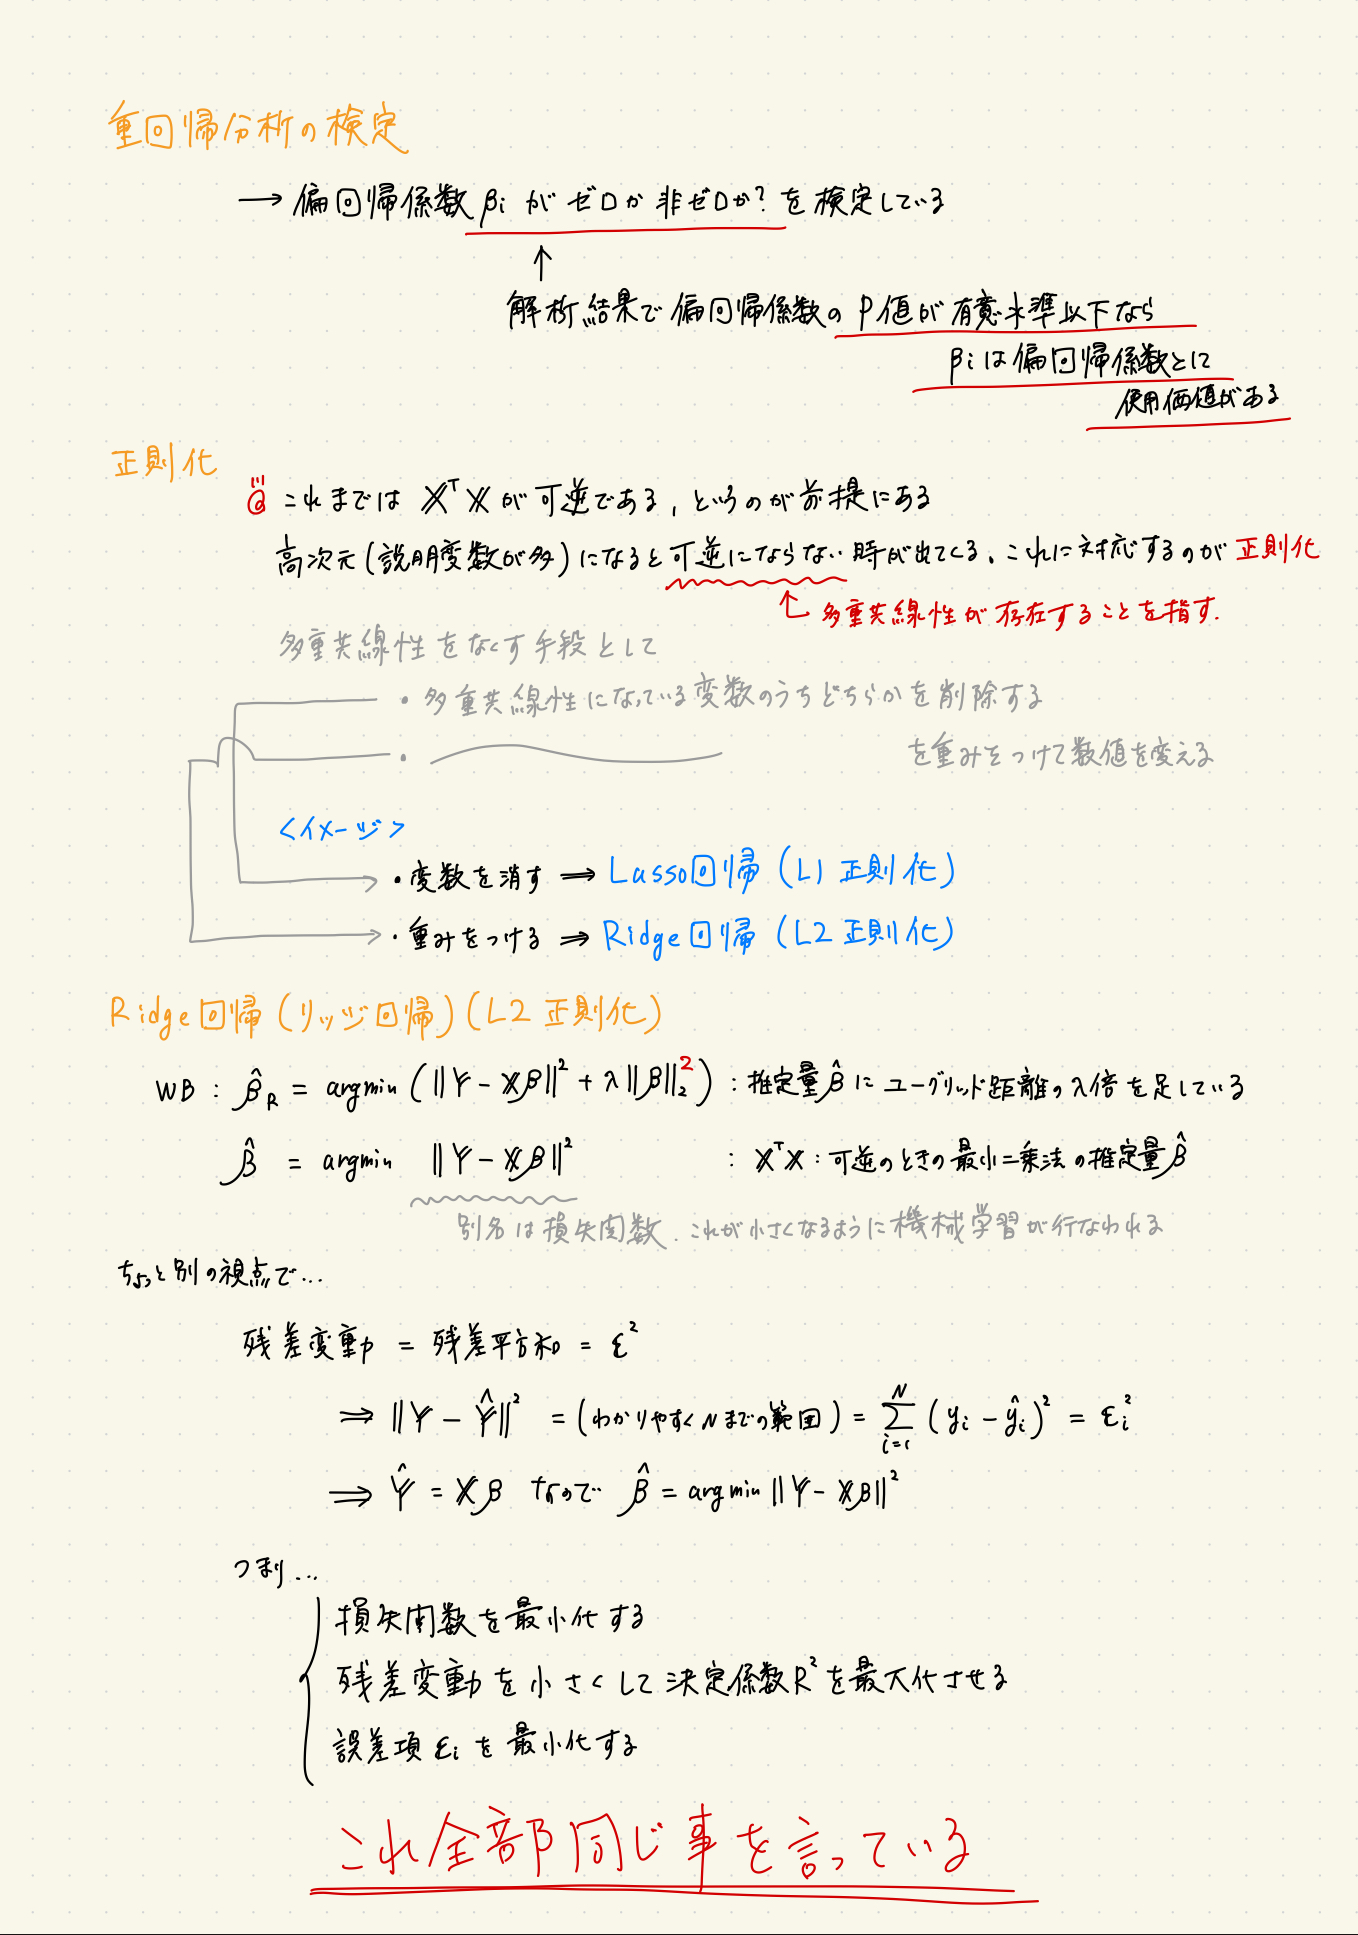 重回帰分析の検定
→ 偏回帰係数 βi が ゼロか 非ゼロか? を検定している
↑
解析結果で 偏回帰係数の P値が有意水準以下なら
βiは偏回帰係数とに
使用価値がある
正則化
これまでは XᵀX が可逆である, というのが前提にある
高次元(説明変数が多)になると可逆にならない時が出てくる。これに対応するのが 正則化
多重共線性が存在することを指す.
多重共線性をなくす手段として
・多重共線性になっている変数のうちどちらかを削除する
・ を重みをつけて数値を変える
<イメージ>
・変数を消す ⇒ Lasso回帰 (L1 正則化)
・重みをつける ⇒ Ridge回帰 (L2 正則化)
Ridge回帰(リッジ回帰)(L2 正則化)
WB : β̂_R = argmin (‖Y - Xβ‖² + λ‖β‖₂²) : 推定量β̂に ユークリッド距離のλ倍を足している
β̂ = argmin ‖Y - Xβ‖² : XᵀX : 可逆のときの最小二乗法の推定量β̂
別名は損失関数. これが小さくなるように機械学習が行なわれる
ちょっと別の視点で...
残差変動 = 残差平方和 = ε²
⇒ ‖Y - Ŷ‖² = (わかりやすくNまでの範囲) = Σ_{i=1}^{N} (yi - ŷi)² = εi²
⇒ Ŷ = Xβ なので β̂ = argmin ‖Y - Xβ‖²
つまり...
損失関数を最小化する
残差変動を小さくして決定係数R²を最大化させる
誤差項 εi を最小化する
これ全部同じ事を言っている